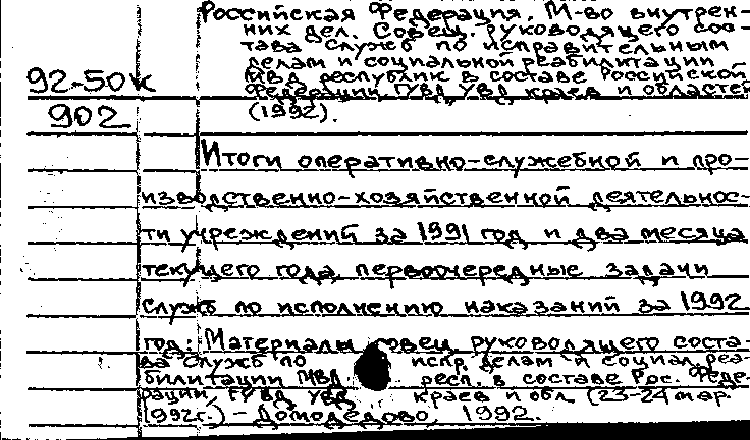 Российская Федерация. М-во внутрен-
них дел. Совещ. руководящего сос-
тава служб по исправительным
делам и социальной реабилитации
92-50к МВД республик в составе Российской
Федерации, ГУВД, УВД краев и областей
902 (1992).
Итоги оперативно-служебной и про-
изводственно-хозяйственной деятельнос-
ти учреждений за 1991 год и два месяца
текущего года, первоочередные задачи
служб по исполнению наказаний за 1992
год: Материалы совещ. руководящего соста-
ва служб по испр. делам и социал. реа-
билитации МВД респ. в составе Рос. Феде-
рации, ГУВД, УВД краев и обл. (23-24 мар.
1992г.) - Домодедово, 1992.